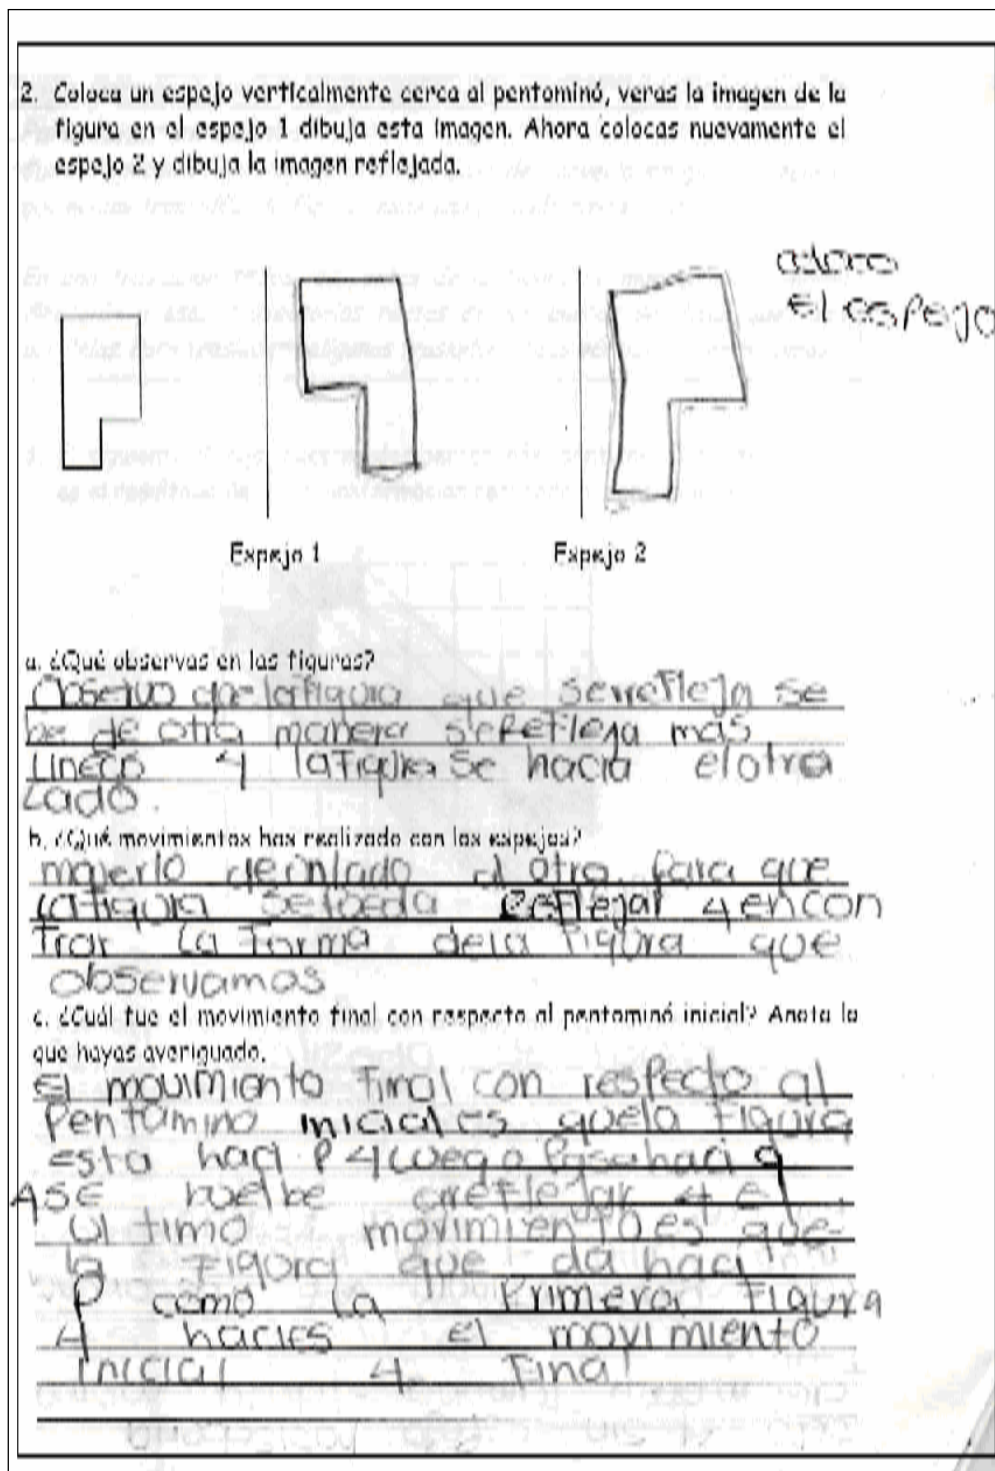 2. Coloca un espejo verticalmente cerca al pentominó, veras la imagen de la
figura en el espejo 1 dibuja esta imagen. Ahora colocas nuevamente el
espejo 2 y dibuja la imagen reflejada.
el espejo
Espejo 1
Espejo 2
a. ¿Qué observas en las figuras?
Observo que lafigura que serrefleja se
be de otra manera seRefleja más
Lineco y lafigura se hacia elotro
Lado.
b. ¿Qué movimientos has realizado con los espejos?
moverlo deunlado al otro para que
lafigura sepoeda reflejar y encon
trar la forma dela figura que
observamos
c. ¿Cuál fue el movimiento final con respecto al pentominó inicial? Anota lo
que hayas averiguado.
El movimiento final con respecto al
Pentomino inicial es quela figura
esta haci P y luego Pasahaci q
Ase buelbe arreflejar y el
ultimo movimiento es que
la figura que da haci
P como la Primera figura
y hacies el movimiento
inicial y final